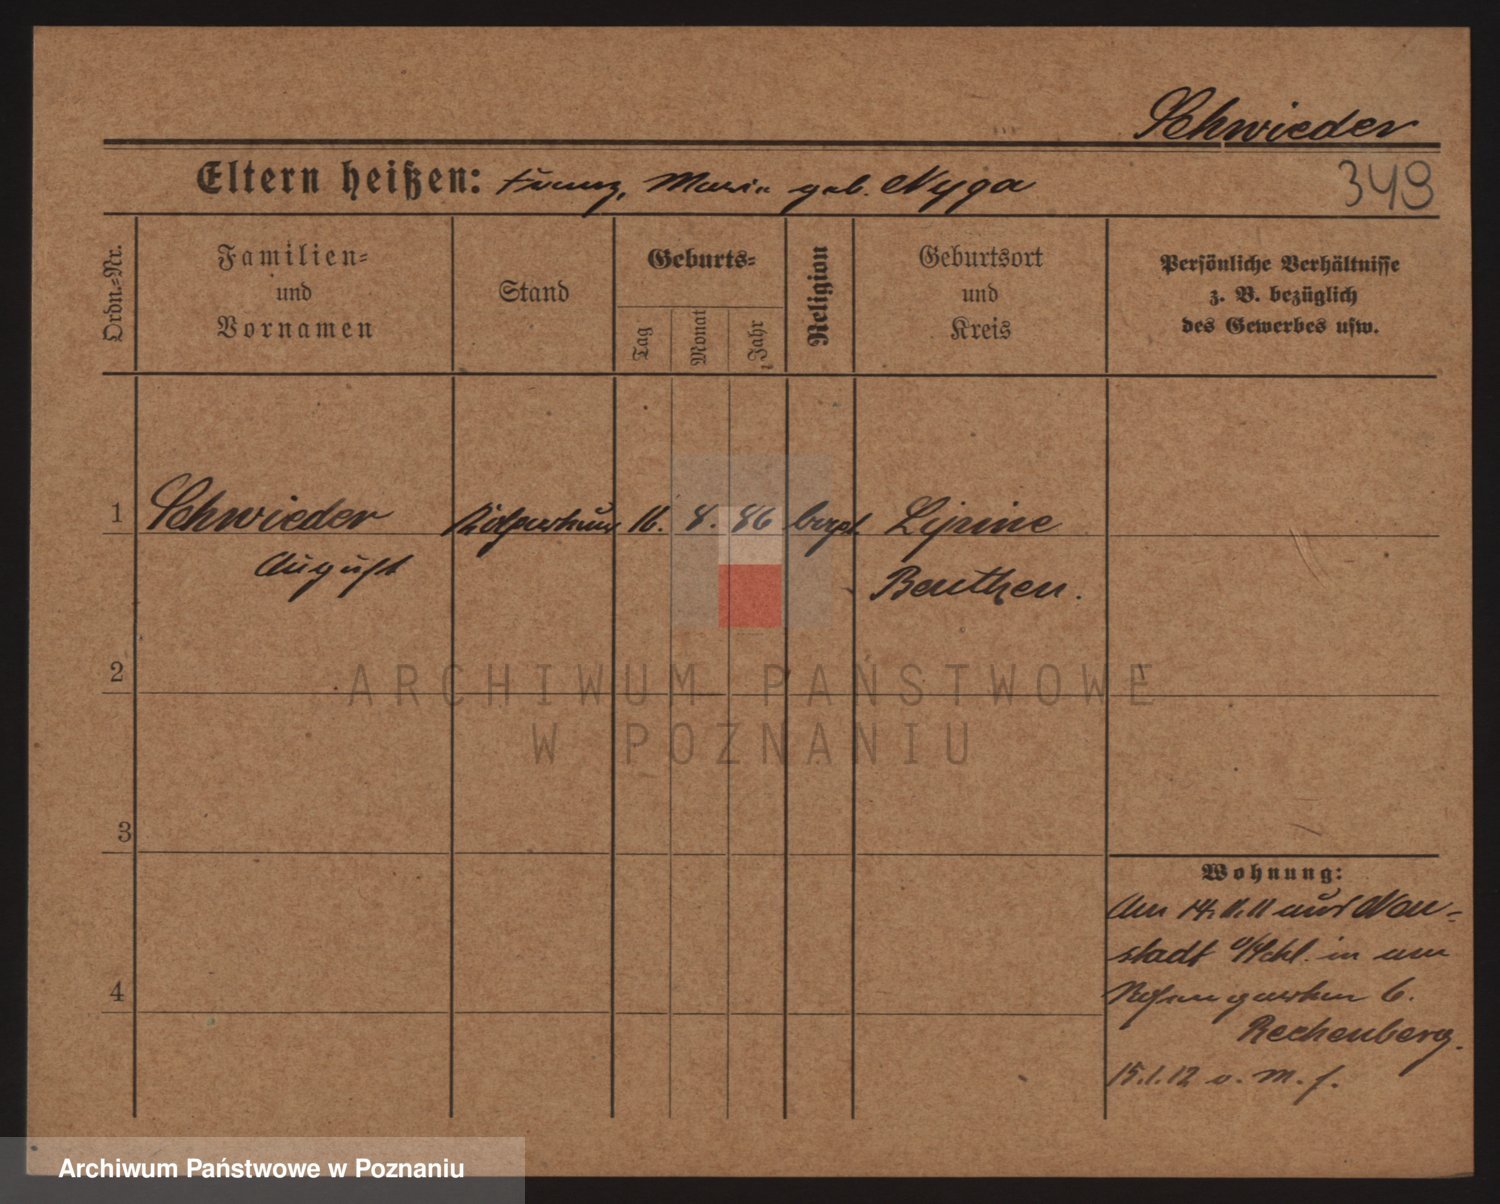 Schwieder
349
Eltern heißen: Franz, Maria geb. Nyga
Ordn.-Nr.
Familien-
und
Vornamen
Stand
Geburts-
Tag
Monat
Jahr
Religion
Geburtsort
und
Kreis
Persönliche Verhältnisse
z. B. bezüglich
des Gewerbes usw.
1
Schwieder
August
16. 8. 86
Lipine
Beuthen.
2
ARCHIWUM PAŃSTWOWE
W POZNANIU
3
Wohnung:
Am 14.11.11 aus Neu-
stadt O/Schl. in am
4
6.
Rechenberg.
15.1.12
Archiwum Państwowe w Poznaniu